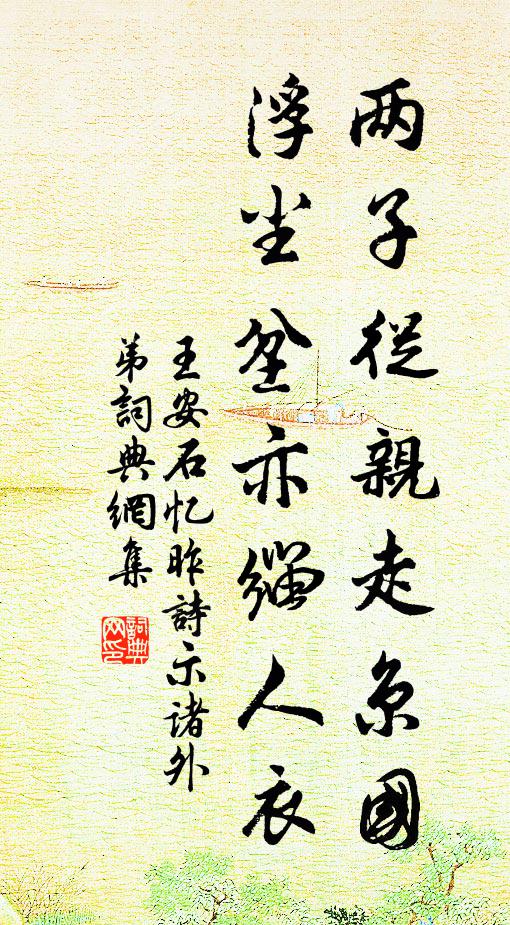 两子從親走京國
浮尘坌亦緇人衣
王安石忆昨詩示诸外
弟詞典網集
詞典
网印